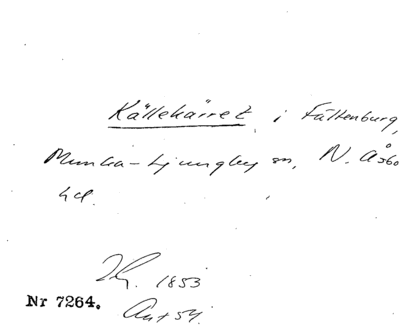 Källekärret i Fältenburg,
Munka-Ljungby sn, N. Åsbo
hd.
1853
Nr 7264.